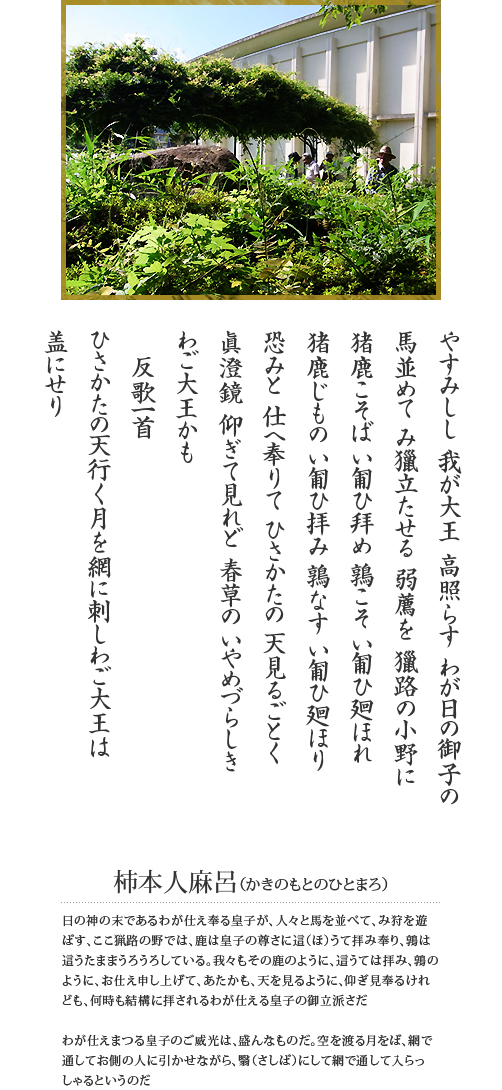 やすみしし 我が大王 高照らす わが日の御子の
馬並めて み獵立たせる 弱薦を 獵路の小野に
猪鹿こそば い匍ひ拜め 鶉こそ い匍ひ廻ほれ
猪鹿じもの い匍ひ拝み 鶉なす い匍ひ廻ほり
恐みと 仕へ奉りて ひさかたの 天見るごとく
眞澄鏡 仰ぎて見れど 春草の いやめづらしき
わご大王かも
反歌一首
ひさかたの天行く月を網に刺しわご大王は
盖にせり
柿本人麻呂(かきのもとのひとまろ)
日の神の末であるわが仕え奉る皇子が、人々と馬を並べて、み狩を遊
ばす、ここ猟路の野では、鹿は皇子の尊さに這(ほ)うて拝み奉り、鶉は
這うたままうろうろしている。我々もその鹿のように、這うては拝み、鶉の
ように、お仕え申し上げて、あたかも、天を見るように、仰ぎ見奉るけれ
ども、何時も結構に拝されるわが仕える皇子の御立派さだ
わが仕えまつる皇子のご威光は、盛んなものだ。空を渡る月をば、網で
通してお側の人に引かせながら、翳(さしば)にして網で通して入らっ
しゃるというのだ